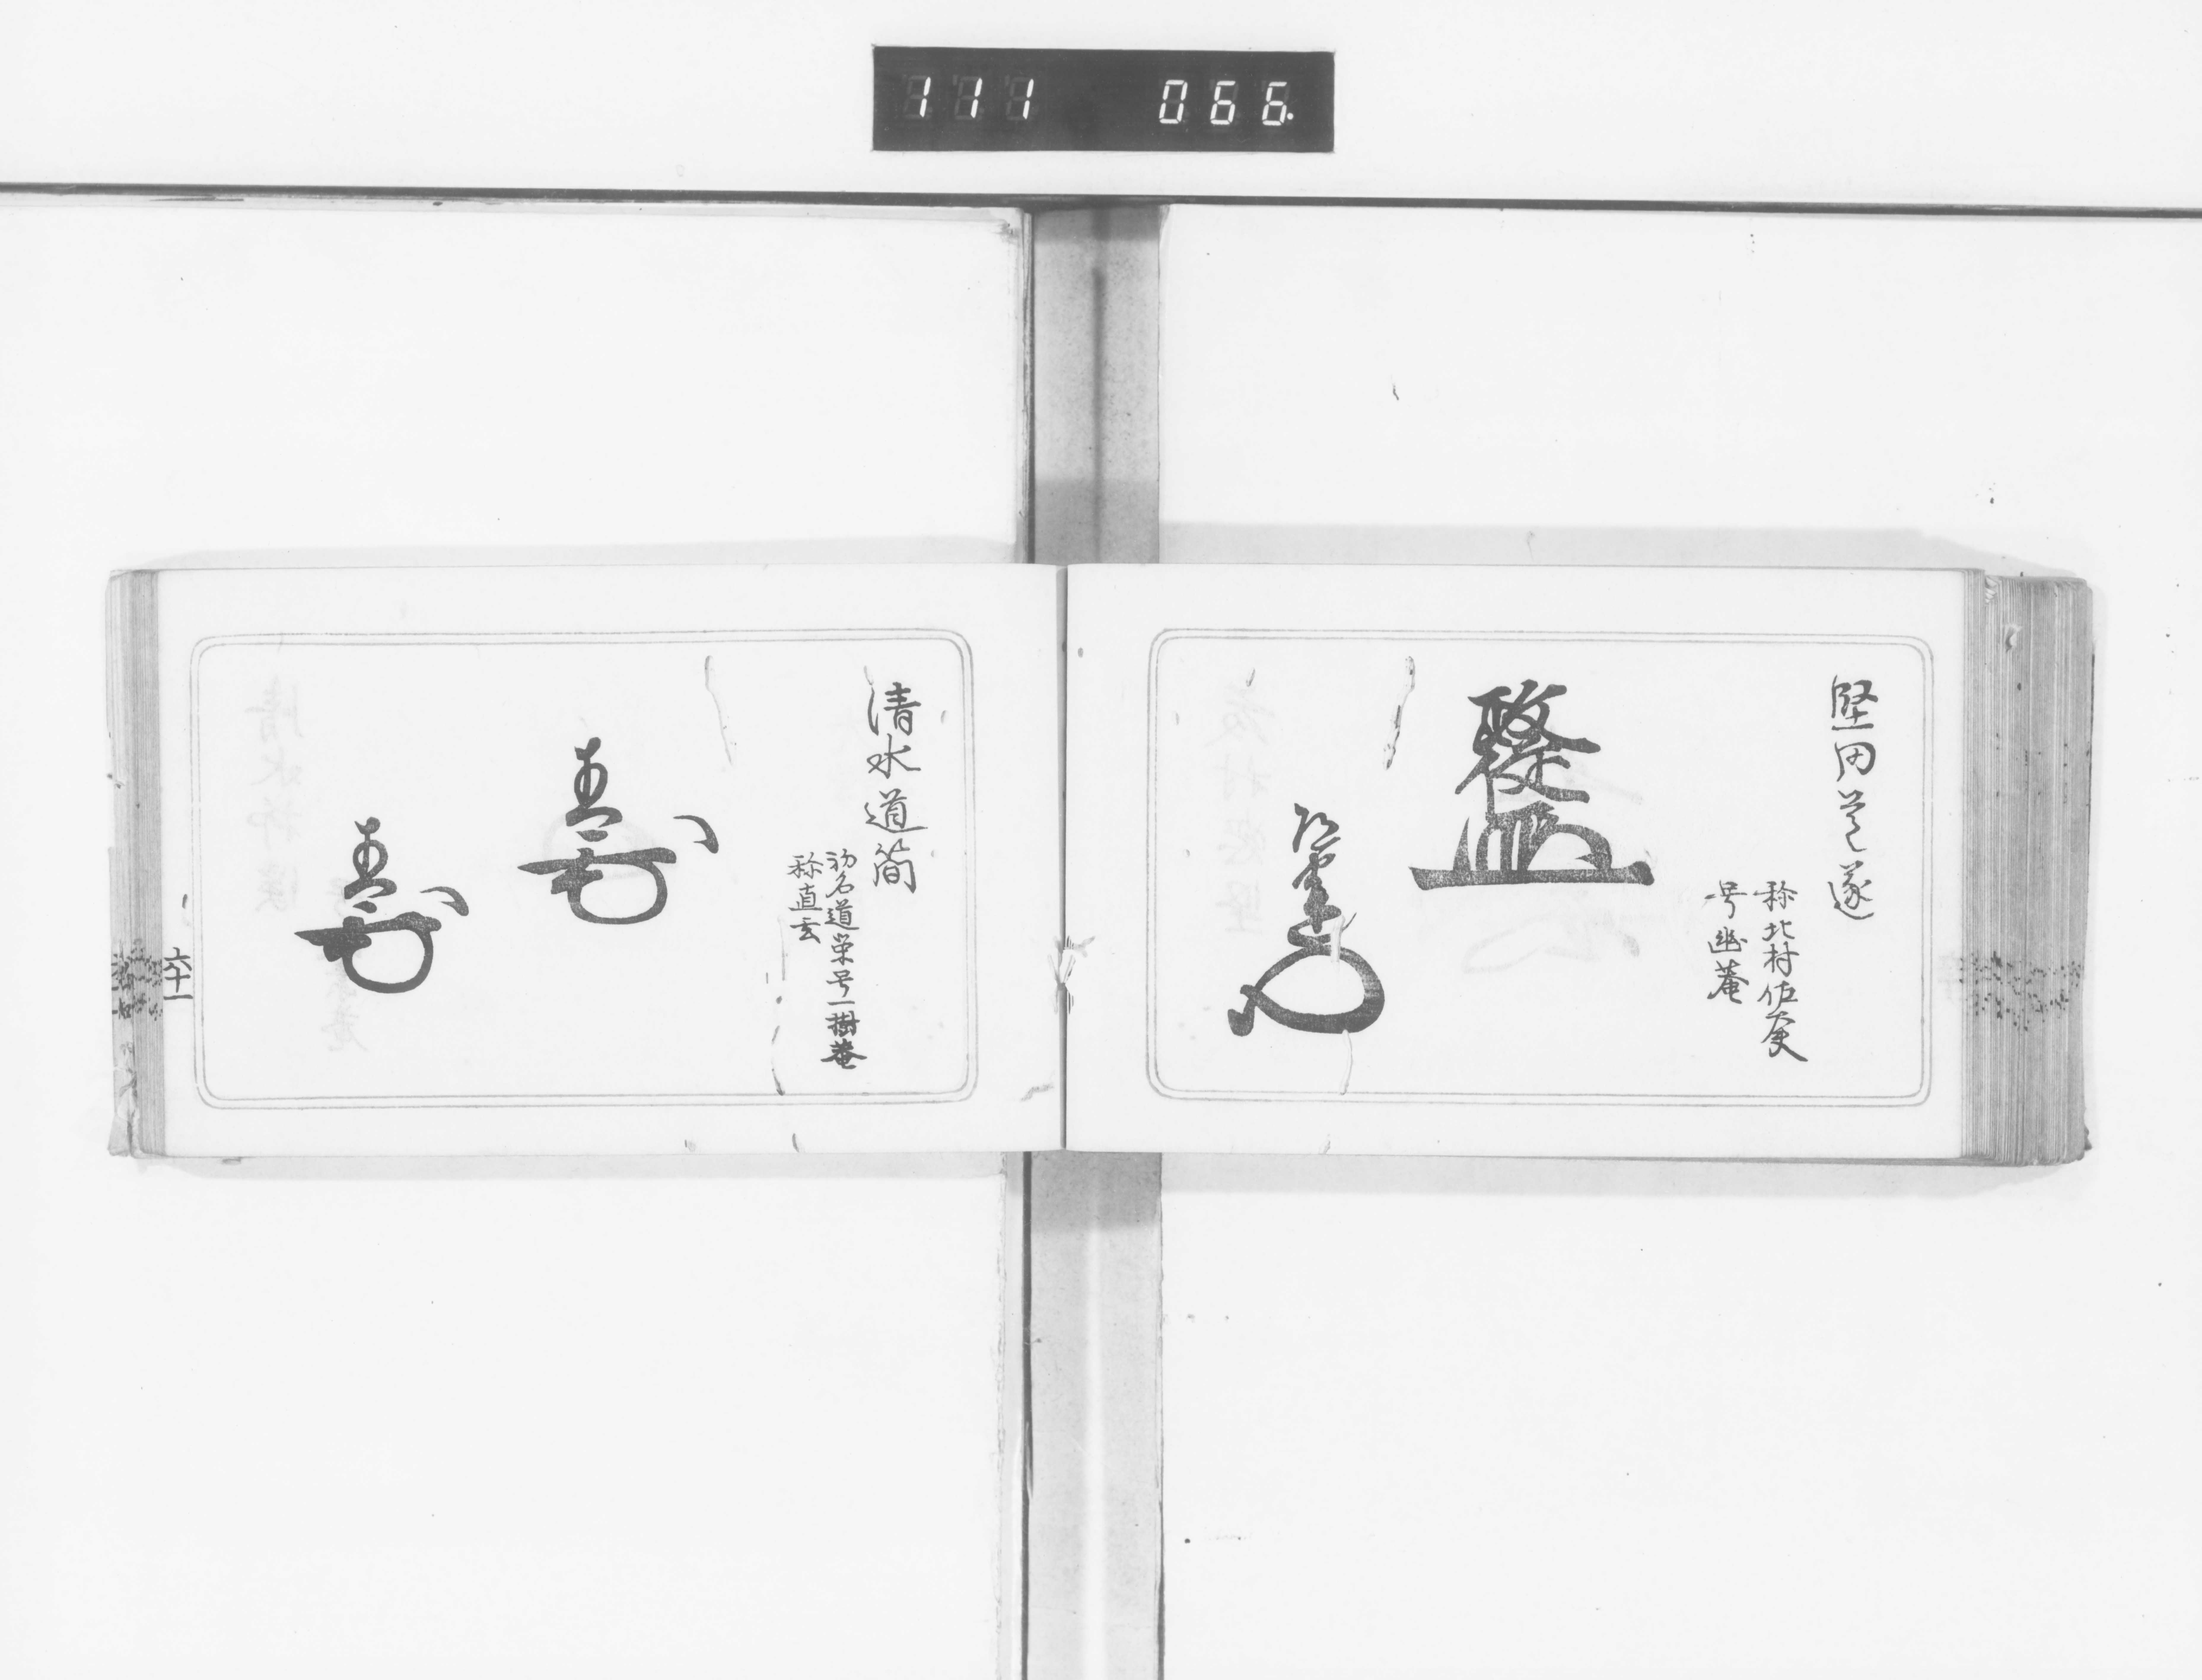 111 066.
堅田益遂
称北村佐吏
号幽菴
清水道簡
初名道栄号一樹菴
称直玄
六十一